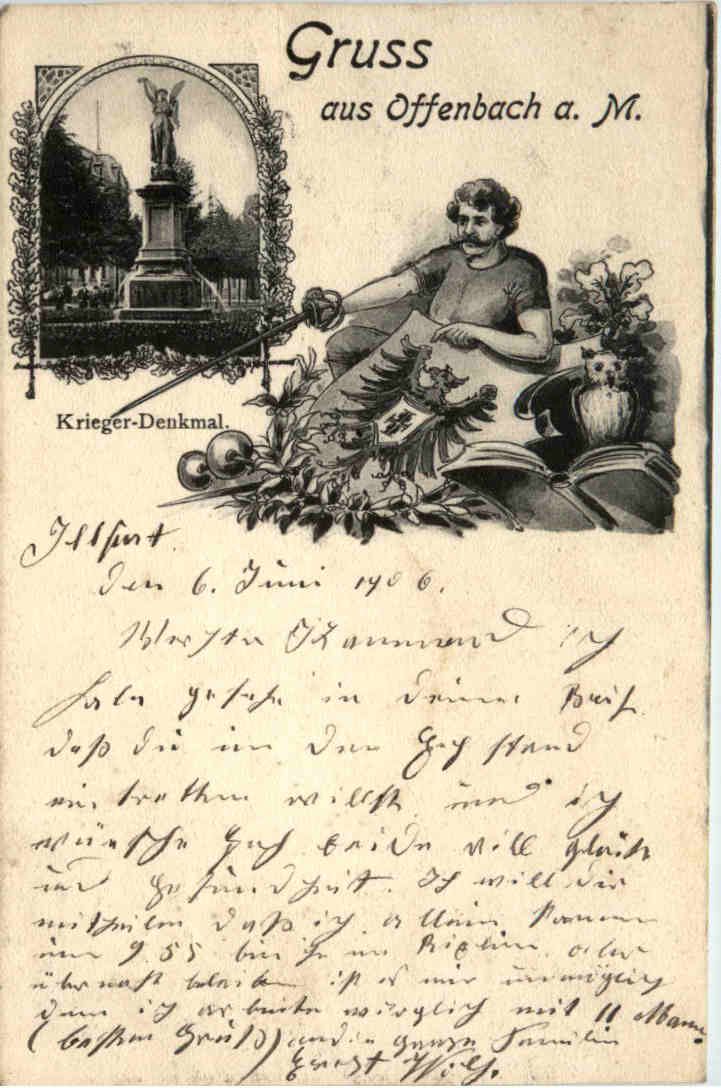 Gruss
aus Offenbach a. M.
Krieger-Denkmal.
Illfurt
den 6. Juni 1906.
Werther Kammerad ich
habe gesehe in deinem Brif
daß du in den Ehstand
eintretten willst und ich
wünsche Euch beide vill glück
und gesundheit. Ich will dir
mitheilen daß ich allein komme
um 9 55 bin ich in aber
übernacht bleiben ist es mir unmöglich
denn ich arbeite wirglich mit 11 Mann.
(besten Gruß) an die ganze Familie